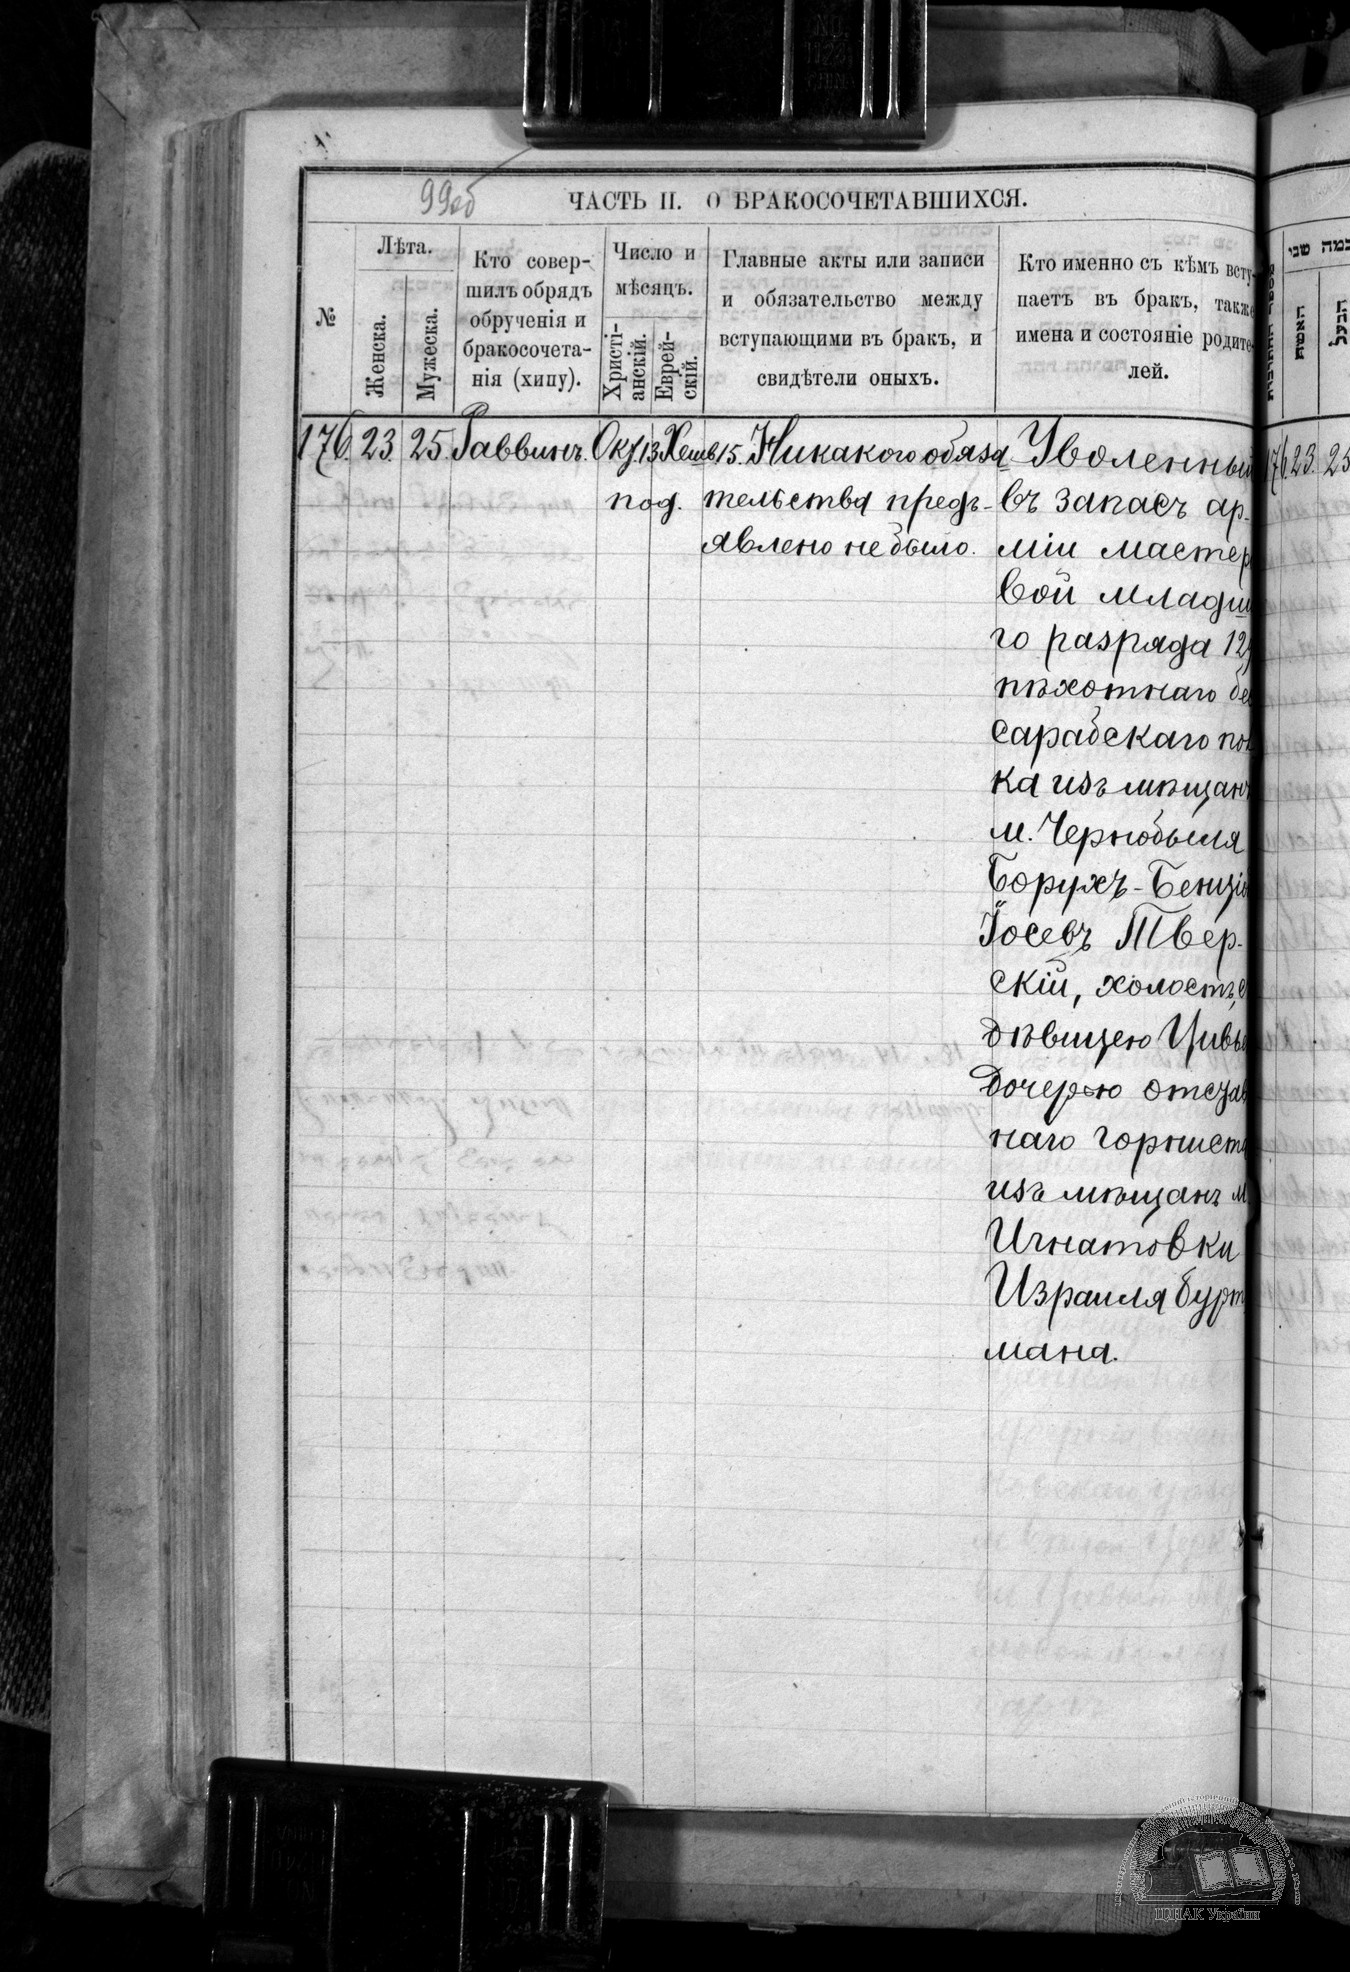 99об
ЧАСТЬ II. О БРАКОСОЧЕТАВШИХСЯ.
№
Лѣта.
Женска.
Мужеска.
Кто совер-
шилъ обрядъ
обрученія и
бракосочета-
нія (хипу).
Число и
мѣсяцъ.
Христі-
анскій.
Еврей-
скій.
Главные акты или записи
и обязательство между
вступающими въ бракъ, и
свидѣтели оныхъ.
Кто именно съ кѣмъ всту-
паетъ въ бракъ, также
имена и состояніе родите-
лей.
176. 23. 25. Раввинъ. Окт. 13. Хешв 15. Никакого обяза
тельства предъ-
явлено не было.
под.
Уволенный
въ запасъ ар-
міи мастер
вой младш
го разряда 12
пѣхотнаго бес
сарабскаго пол
ка изъ мѣщанъ
м. Чернобыля
Борухъ-Бенціо
Іосевъ Твер-
скій, холостъ, с
дѣвицею Цивьe
дочерью отстав
наго горниста
изъ мѣщанъ м
Игнатовки
Израиля Бурт
мана.
כמה שני
האשה
הבעל
176. 23. 25
ЦДІАК України